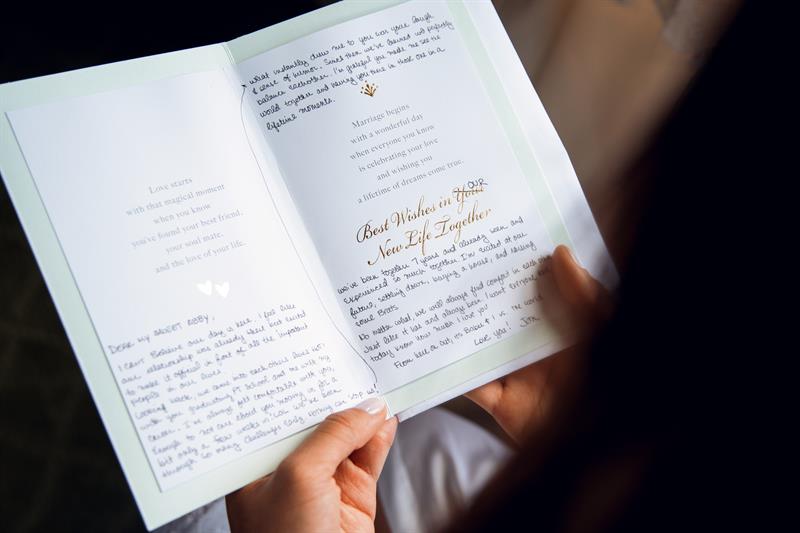 Love starts
with that magical moment
when you know
you've found your best friend,
your soul mate,
and the love of your life.
DEAR MY ABBY,
I can't believe our day is here. I feel like
our relationship was already there but excited
to make it official in front of all the important
people in our lives.
Looking back, we came into each others lives
with you graduating PT School and me with my
career. I've always felt comfortable with you,
enough to not care about you moving in for a
but only a few weeks LOL we've been
through so many challenges early nothing can stop us!
what instantly drew me to you was your laugh
& sense of humor. Since then we've learned
balance eachother. I'm grateful you made me see the
world together and having you there in those one in a
lifetime moments.
Marriage begins
with a wonderful day
when everyone you know
is celebrating your love
and wishing you
a lifetime of dreams come true.
OUR
Best Wishes in Your
New Life Together
we've been together 7 years and already seen and
experienced so much together I'm excited at our
future, settling down, buying a house, and raising
some Brats.
No matter what, we will always find comfort in each other
Just like it has and always been. I want everyone
today know how much I love you!
From here on out, it's & I vs. the world
Love you!